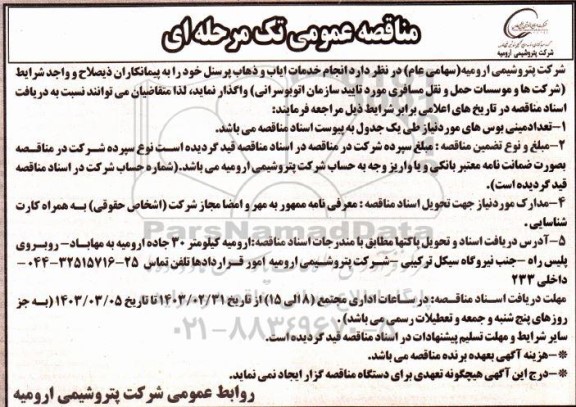 مناقصه عمومی تک مرحله ای
شرکت پتروشیمی ارومیه
شرکت پتروشیمی ارومیه(سهامی عام) در نظر دارد انجام خدمات ایاب و ذهاب پرسنل خود را به پیمانکاران ذیصلاح و واجد شرایط
(شرکت ها و موسسات حمل و نقل مسافری مورد تایید سازمان اتوبوسرانی) واگذار نماید، لذا متقاضیان می توانند نسبت به دریافت
اسناد مناقصه در تاریخ های اعلامی برابر شرایط ذیل مراجعه فرمایند:
۱-تعداد مینی بوس های موردنیاز طی یک جدول به پیوست اسناد مناقصه می باشد.
۲-مبلغ و نوع تضمین مناقصه : مبلغ سپرده شرکت در مناقصه در اسناد مناقصه قید گردیده است نوع سپرده شرکت در مناقصه
بصورت ضمانت نامه معتبر بانکی و یا واریز وجه به حساب شرکت پتروشیمی ارومیه می باشد.(شماره حساب شرکت در اسناد مناقصه
قید گردیده است).
۴-مدارک موردنیاز جهت تحویل اسناد مناقصه : معرفی نامه ممهور به مهر و امضا مجاز شرکت (اشخاص حقوقی) به همراه کارت
شناسایی .
۵-آدرس دریافت اسناد و تحویل پاکتها مطابق با مندرجات اسناد مناقصه:ارومیه کیلومتر ۳۰ جاده ارومیه به مهاباد- روبروی
پلیس راه -جنب نیروگاه سیکل ترکیبی -شرکت پتروشیمی ارومیه امور قراردادها تلفن تماس ۲۵-۳۲۵۱۵۷۱۶-۰۴۴
داخلی ۲۳۳
مهلت دریافت اسناد مناقصه: در ساعات اداری مجتمع (۸ الی ۱۵) از تاریخ ۱۴۰۳/۰۲/۳۱ تا تاریخ ۱۴۰۳/۰۳/۰۵ (به جز
روزهای پنج شنبه و جمعه و تعطیلات رسمی می باشد).
سایر شرایط و مهلت تسلیم پیشنهادات در اسناد مناقصه قید گردیده است.
*-هزینه آگهی بعهده برنده مناقصه می باشد.
*-درج این آگهی هیچگونه تعهدی برای دستگاه مناقصه گزار ایجاد نمی نماید.
روابط عمومی شرکت پتروشیمی ارومیه
ParsNamadData
۰۲۱-۸۸۳۴۹۶۷۰-۵